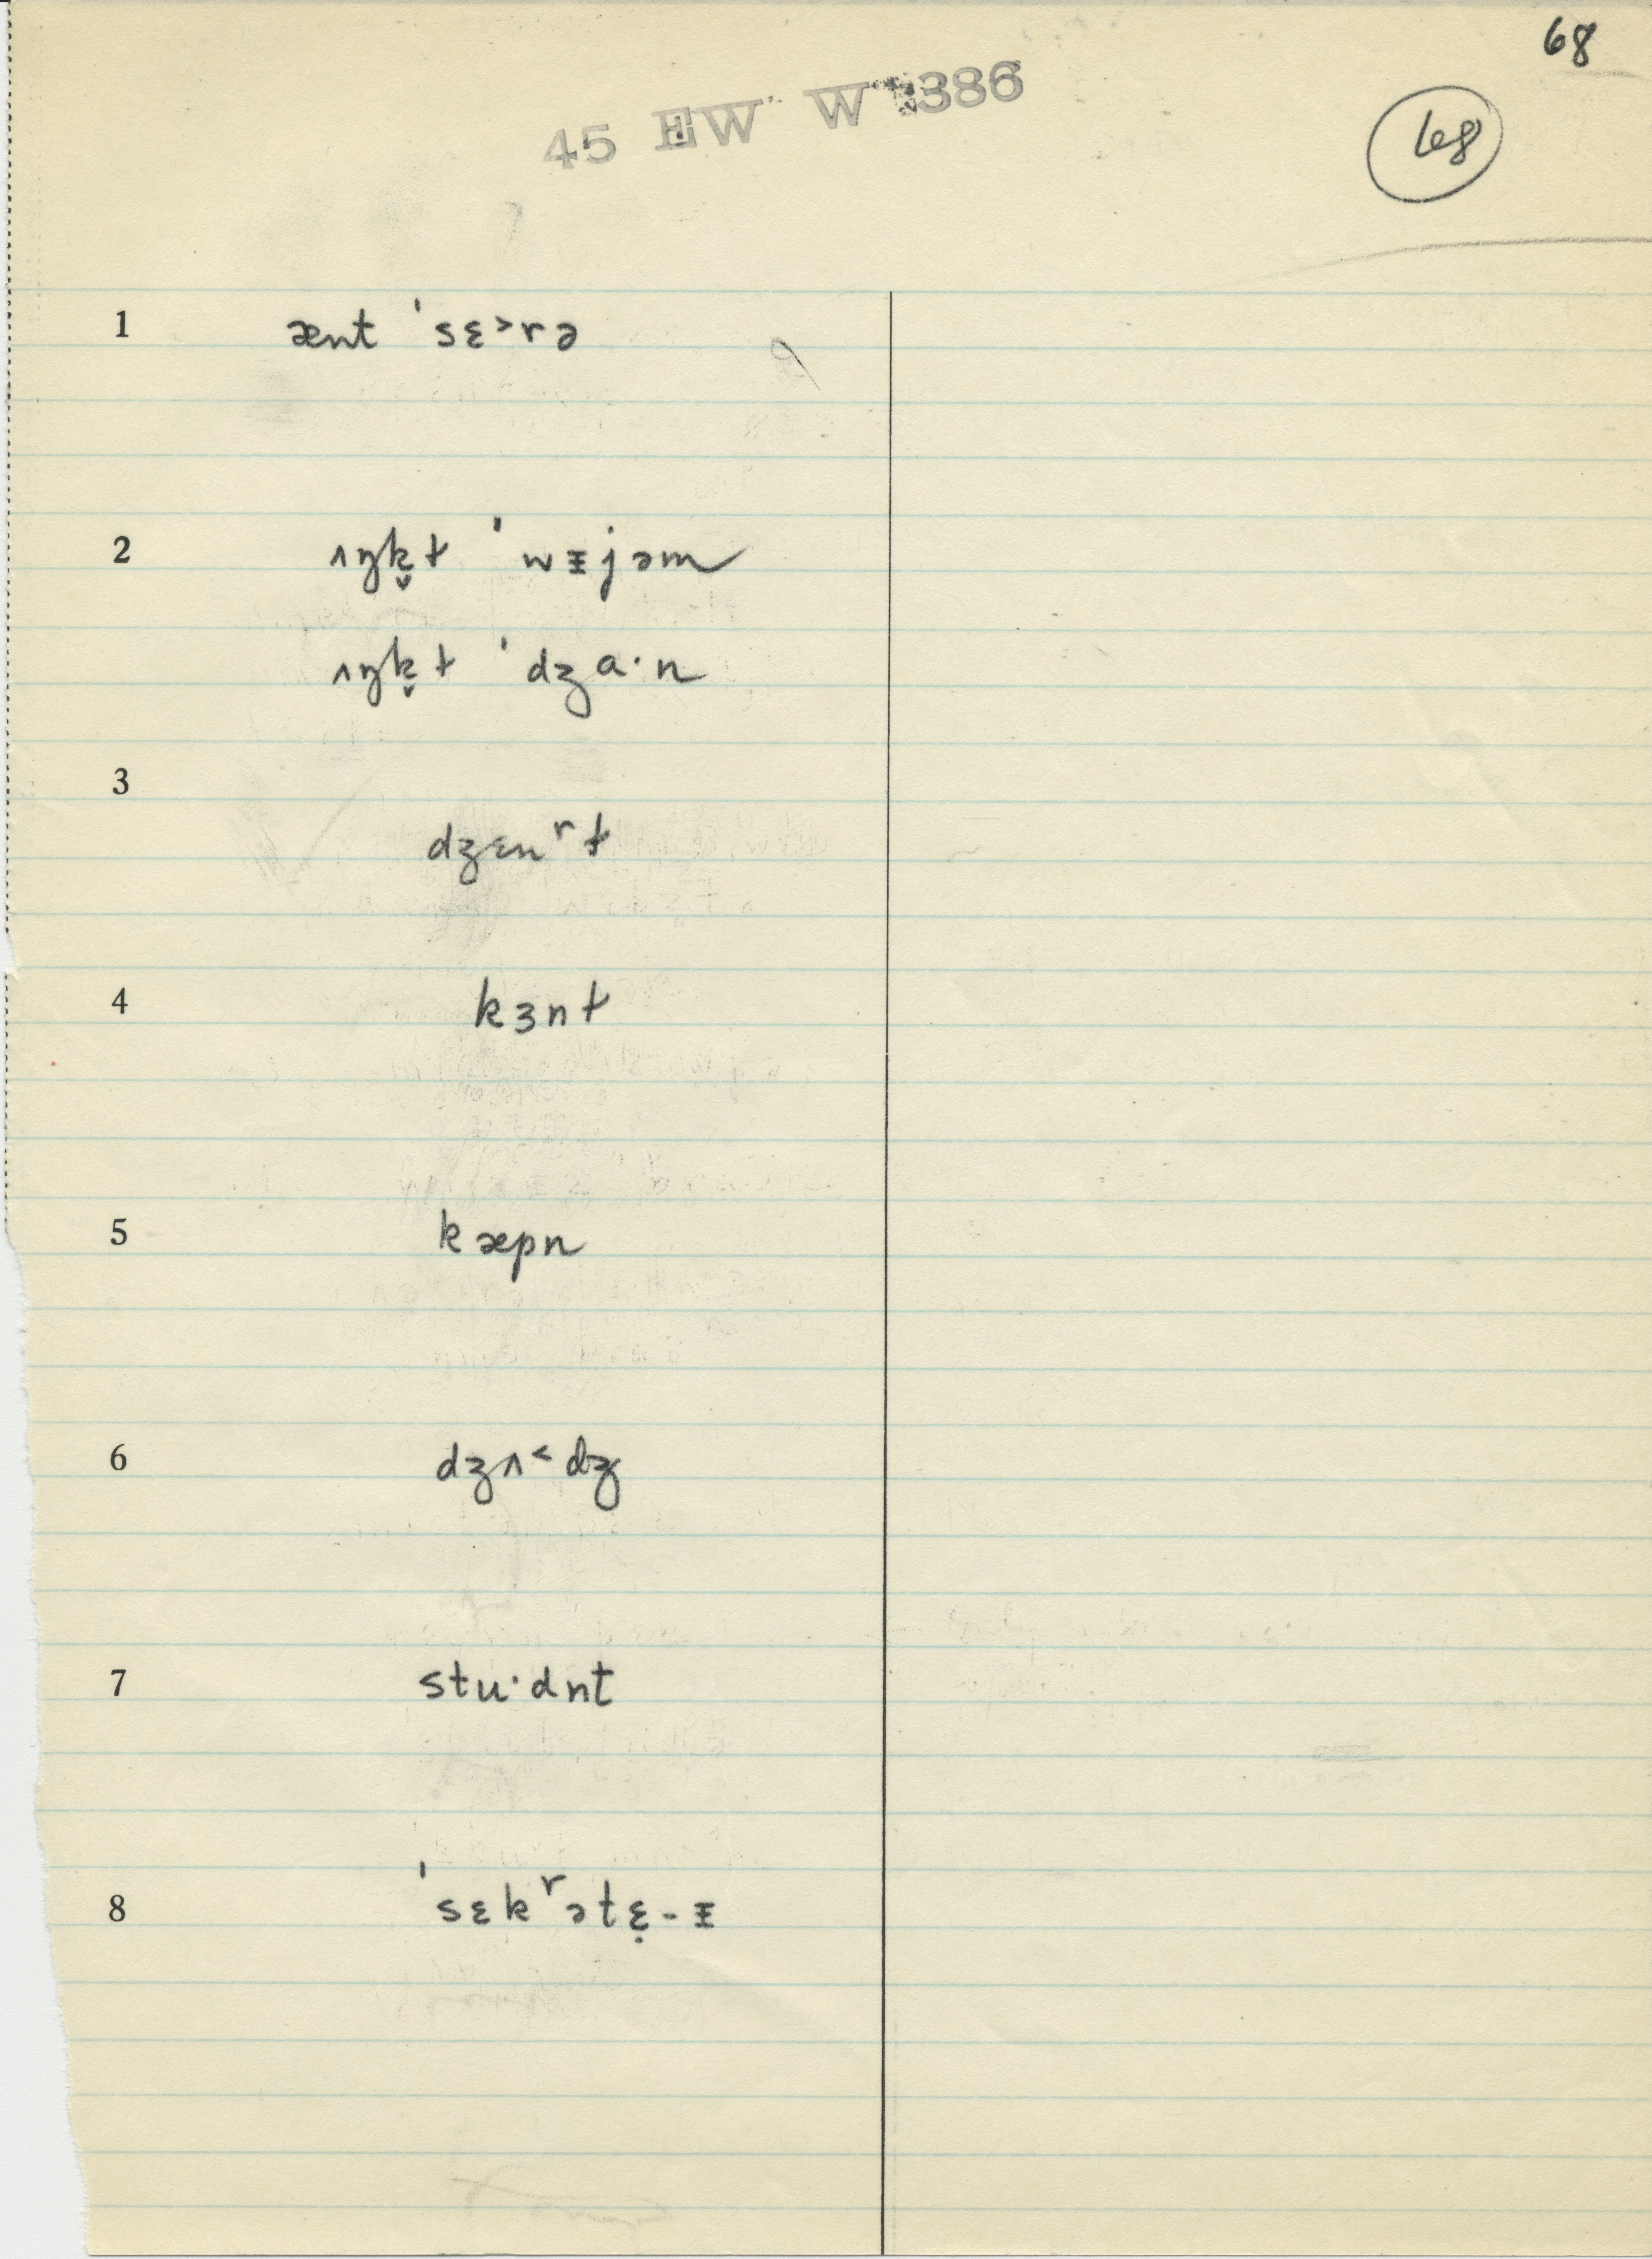 68
45 EW W 386
68
1 ænt ˈsɛ˃rə
2 ʌŋk̬ɫ ˈwᵻjəm
ʌŋk̬ɫ ˈdʒɑ·n
3 dʒɛnʳɫ
4 kɜnɫ
5 kæpn
6 dʒʌ˂dʒ
7 stu·dnt
8 ˈsɛkʳətɛ̣-ᵻ